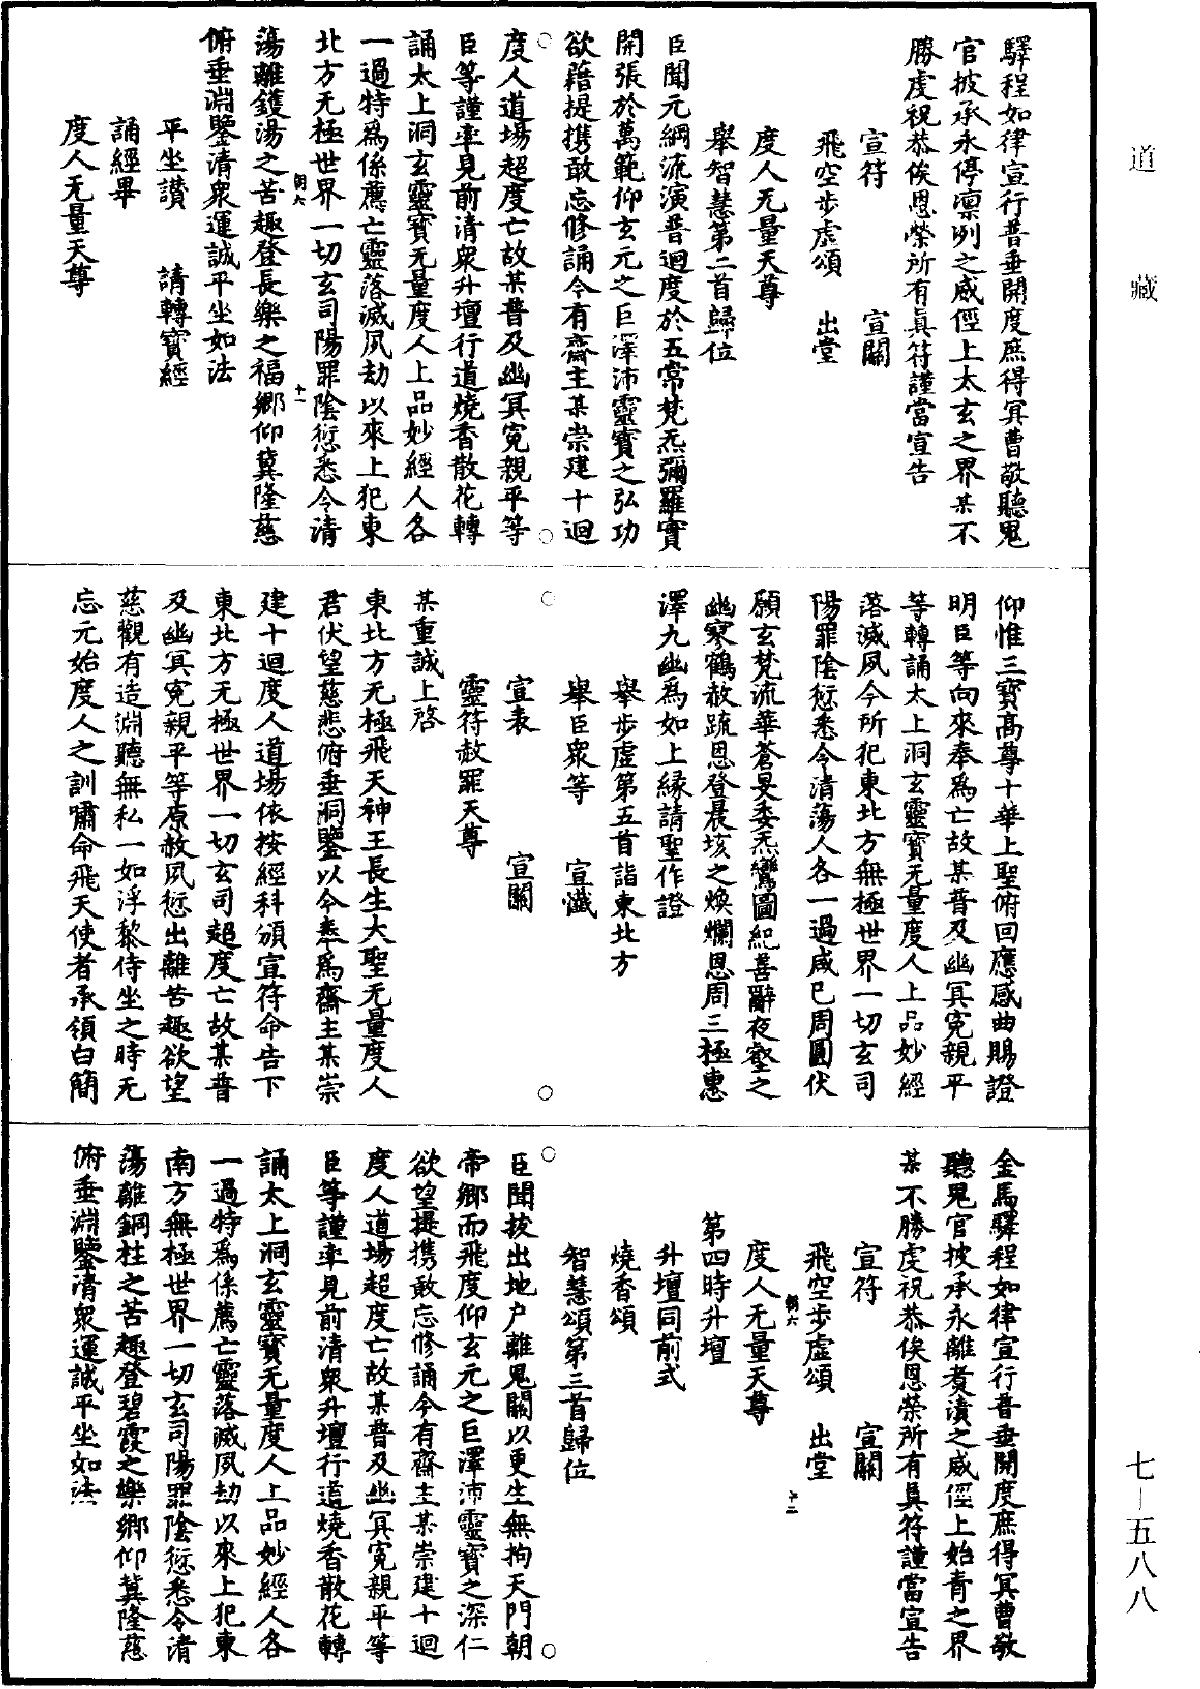 道藏
驛程如律宣行普垂開度庶得冥曹敬聽鬼
官披承永停凛冽之威俓上太玄之界某不
勝虔祝恭俟恩榮所有真符謹當宣告
宣符　宣關
飛空步虛頌　出堂
度人无量天尊
舉智慧第二首歸位
臣聞元綱流演普迴度於五常梵炁彌羅寶
開張於萬範仰玄元之巨澤沛靈寶之弘功
欲藉提携敢忘修誦今有齋主某崇建十迴
度人道場超度亡故某普及幽冥冤親平等
臣等謹率見前清衆升壇行道燒香散花轉
誦太上洞玄靈寶无量度人上品妙經人各
一過特爲係薦亡靈落滅夙劫以來上犯東
北方无極世界一切玄司陽罪陰愆悉令清
朝六　十一
蕩離鑊湯之苦趣登長樂之福鄉仰冀隆慈
俯垂淵鑒清衆運誠平坐如法
平坐讚　請轉寶經
誦經畢
度人无量天尊
仰惟三寶髙尊十華上聖俯回應感曲賜證
明臣等向來奉爲亡故某普及幽冥冤親平
等轉誦太上洞玄靈寶无量度人上品妙經
落滅夙今所犯東北方無極世界一切玄司
陽罪陰愆悉令清蕩人各一過咸巳周圓伏
願玄梵流華蒼旻委炁鸞圖紀善辭夜壑之
幽寥鶴赦䟽恩登晨垓之煥爛恩周三極惠
澤九幽爲如上縁請聖作證
舉步虛第五首詣東北方
舉臣衆等　宣懺
宣表　宣關
靈符赦罪天尊
某重誠上啓
東北方无極飛天神王長生大聖无量度人
君伏望慈悲俯垂洞鑒以今奉爲齋主某崇
建十迴度人道場依按經科頒宣符命告下
東北方无極世界一切玄司超度亡故某普
及幽冥冤親平等原赦夙愆出離苦趣欲望
慈觀有造淵聽無私一如浮黎侍坐之時无
忘元始度人之訓嘯命飛天使者承領白簡
金馬驛程如律宣行普垂開度庶得冥曹敬
聽鬼官披承永離煑漬之威俓上始青之界
某不勝虔祝恭俟恩榮所有真符謹當宣告
宣符　宣關
飛空步虛頌　出堂
朝六　十二
度人无量天尊
第四時升壇
升壇同前式
燒香頌
智慧頌第三首歸位
臣聞拔出地户離鬼關以更生無拘天門朝
帝鄉而飛度仰玄元之巨澤沛靈寶之深仁
欲望提携敢忘修誦今有齋主某崇建十迴
度人道場超度亡故某普及幽冥冤親平等
臣等謹率見前清衆升壇行道燒香散花轉
誦太上洞玄靈寶无量度人上品妙經人各
一過特爲係薦亡靈落滅夙劫以來上犯東
南方無極世界一切玄司陽罪陰愆悉令清
蕩離銅柱之苦趣登碧霞之樂鄉仰冀隆慈
俯垂淵鑒清衆運誠平坐如法
七—五八八